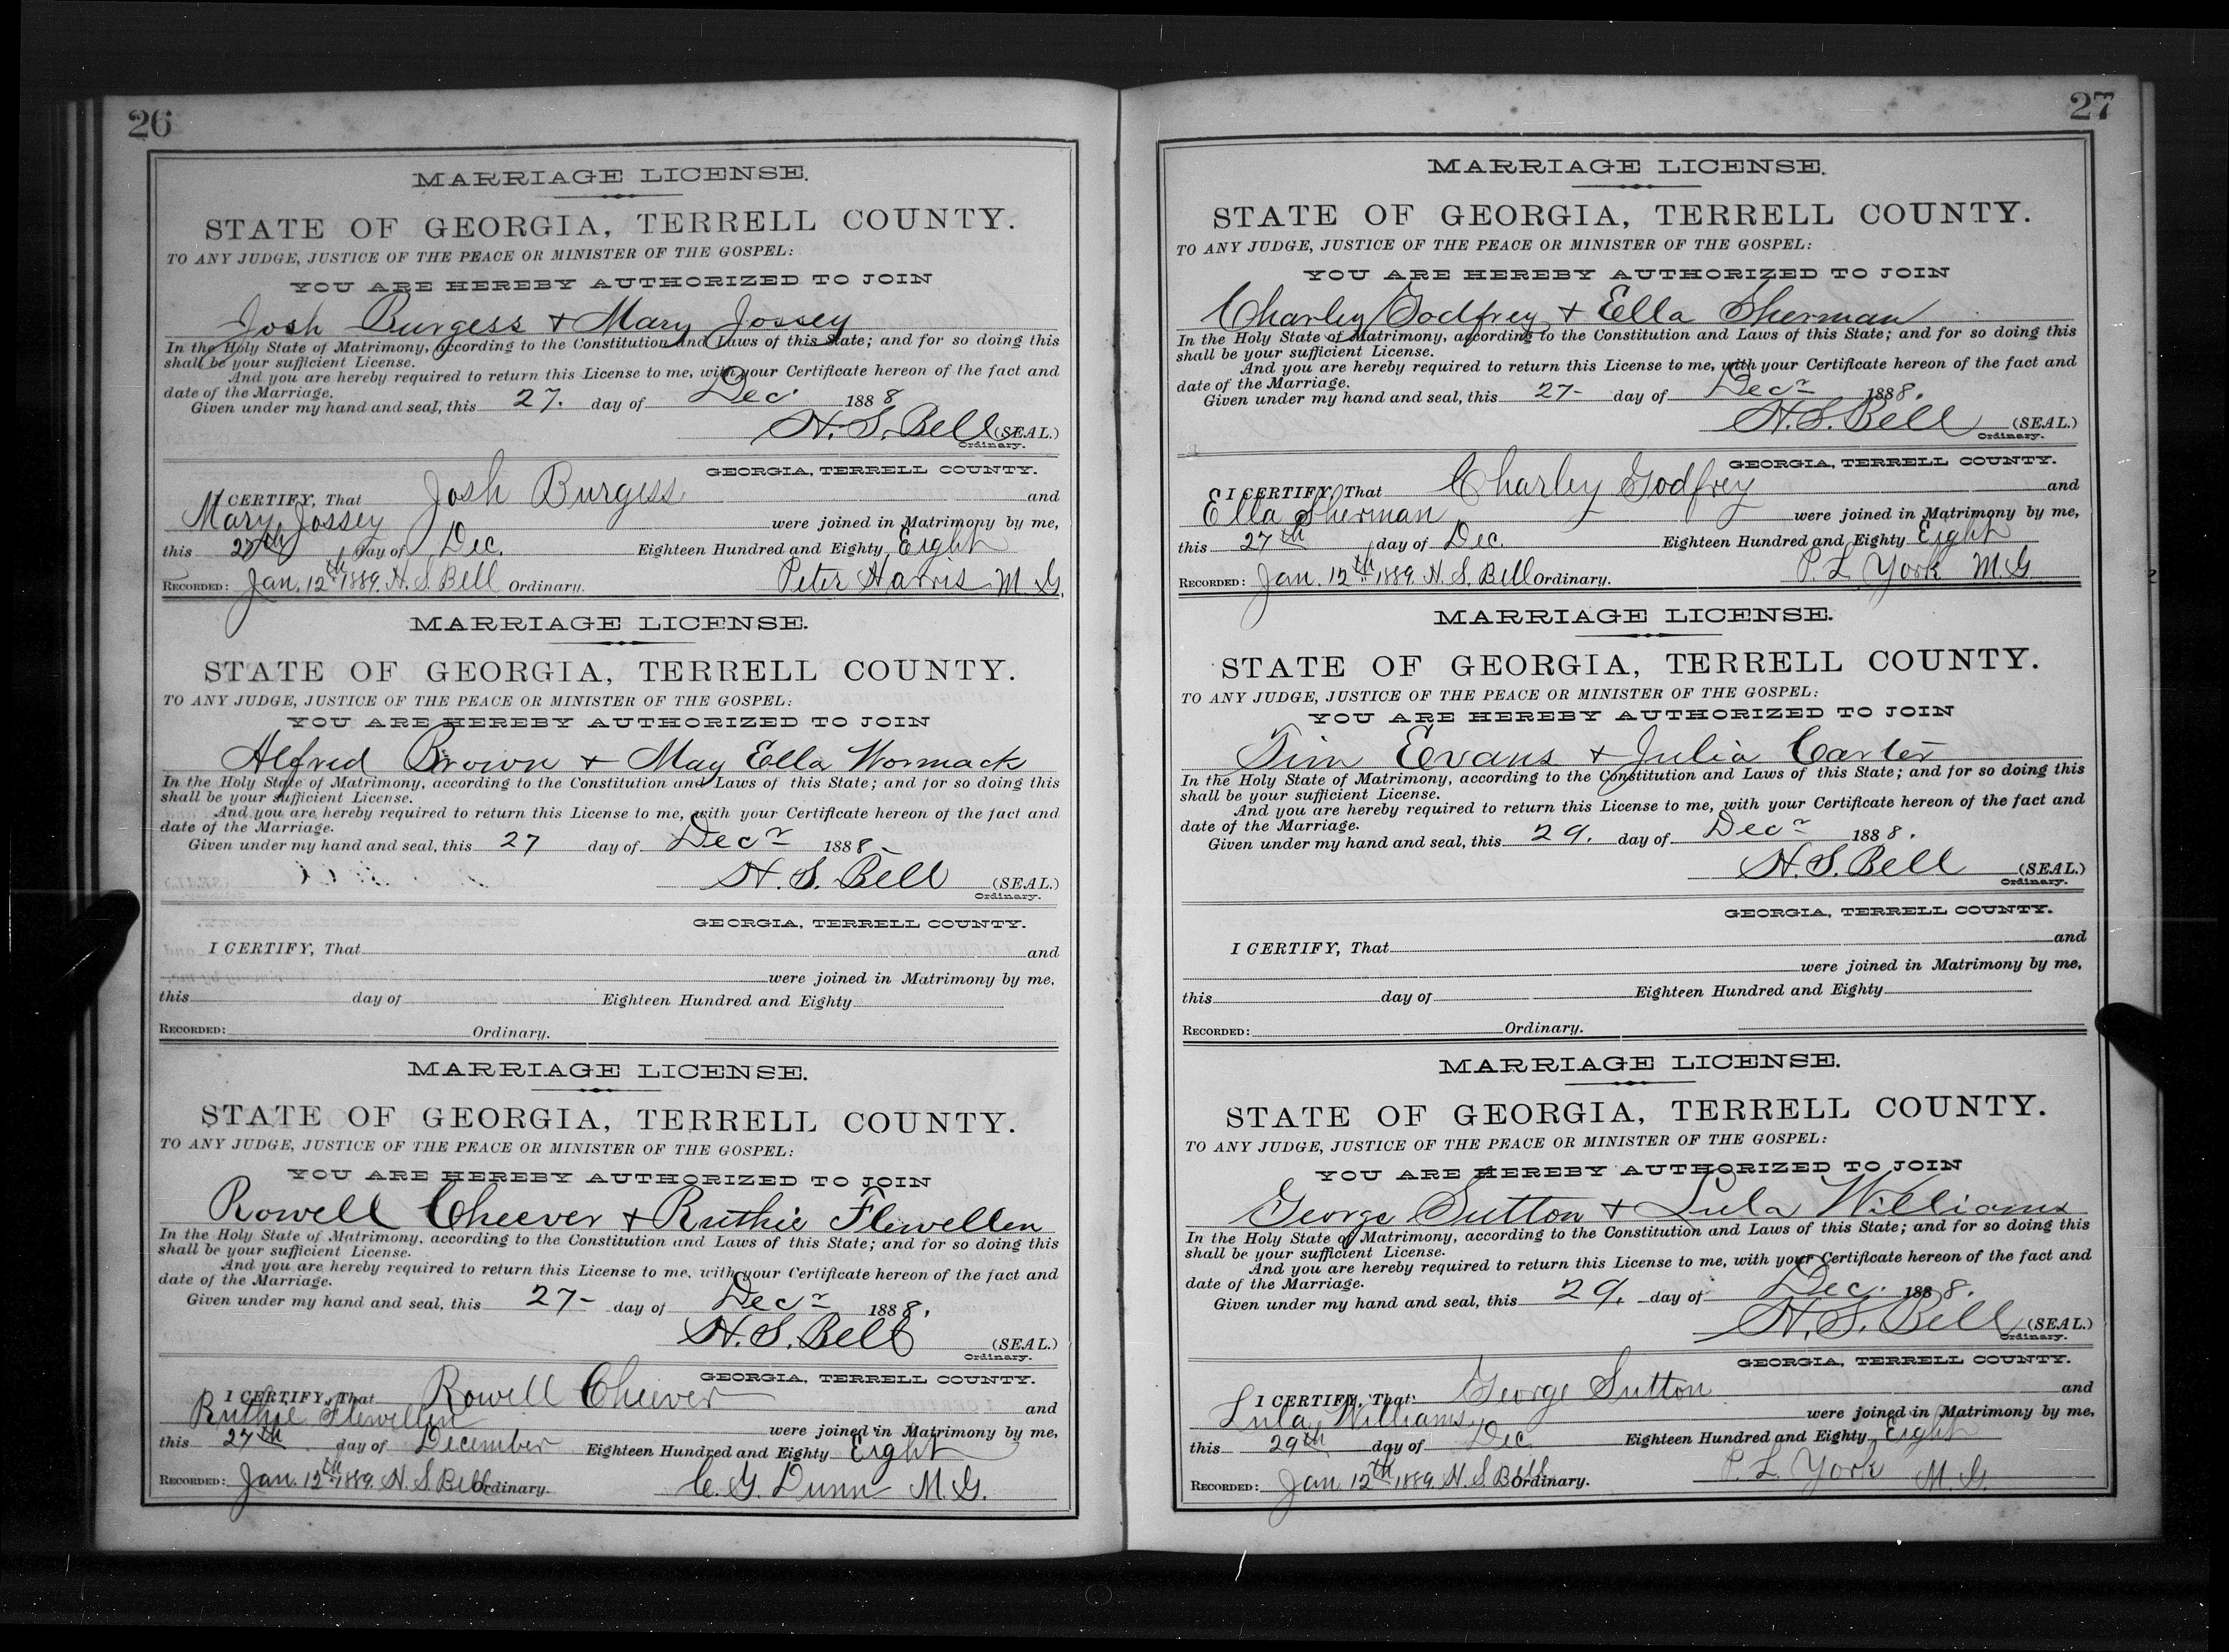 26
MARRIAGE LICENSE.
STATE OF GEORGIA, TERRELL COUNTY.
TO ANY JUDGE, JUSTICE OF THE PEACE OR MINISTER OF THE GOSPEL:
YOU ARE HEREBY AUTHORIZED TO JOIN
Josh Burgess + Mary Jossey
In the Holy State of Matrimony, according to the Constitution and Laws of this State; and for so doing this
shall be your sufficient License.
And you are hereby required to return this License to me, with your Certificate hereon of the fact and
date of the Marriage.
Given under my hand and seal, this 27. day of Dec. 1888
H. S. Bell (SEAL.)
Ordinary.
GEORGIA, TERRELL COUNTY.
I CERTIFY, That Josh Burgess and
Mary Jossey were joined in Matrimony by me,
this 27th day of Dec. Eighteen Hundred and Eighty Eight
RECORDED: Jan. 12th 1889. H. S. Bell Ordinary. Peter Harris M. G.
MARRIAGE LICENSE.
STATE OF GEORGIA, TERRELL COUNTY.
TO ANY JUDGE, JUSTICE OF THE PEACE OR MINISTER OF THE GOSPEL:
YOU ARE HEREBY AUTHORIZED TO JOIN
Alfred Brown + May Ella Wormack
In the Holy State of Matrimony, according to the Constitution and Laws of this State; and for so doing this
shall be your sufficient License.
And you are hereby required to return this License to me, with your Certificate hereon of the fact and
date of the Marriage.
Given under my hand and seal, this 27 day of Decr 1888.
H. S. Bell (SEAL.)
Ordinary.
GEORGIA, TERRELL COUNTY.
I CERTIFY, That and
were joined in Matrimony by me,
this day of Eighteen Hundred and Eighty
RECORDED: Ordinary.
MARRIAGE LICENSE.
STATE OF GEORGIA, TERRELL COUNTY.
TO ANY JUDGE, JUSTICE OF THE PEACE OR MINISTER OF THE GOSPEL:
YOU ARE HEREBY AUTHORIZED TO JOIN
Rowell Cheever + Ruthie Flewellen
In the Holy State of Matrimony, according to the Constitution and Laws of this State; and for so doing this
shall be your sufficient License.
And you are hereby required to return this License to me, with your Certificate hereon of the fact and
date of the Marriage.
Given under my hand and seal, this 27- day of Decr 1888.
H. S. Bell (SEAL.)
Ordinary.
GEORGIA, TERRELL COUNTY.
I CERTIFY, That Rowell Cheever and
Ruthie Flewellen were joined in Matrimony by me,
this 27th day of December Eighteen Hundred and Eighty Eight
RECORDED: Jan. 12th 1889. H. S. Bell Ordinary. C. G. Dunn M. G.
27
MARRIAGE LICENSE.
STATE OF GEORGIA, TERRELL COUNTY.
TO ANY JUDGE, JUSTICE OF THE PEACE OR MINISTER OF THE GOSPEL:
YOU ARE HEREBY AUTHORIZED TO JOIN
Charley Godfrey + Ella Sherman
In the Holy State of Matrimony, according to the Constitution and Laws of this State; and for so doing this
shall be your sufficient License.
And you are hereby required to return this License to me, with your Certificate hereon of the fact and
date of the Marriage.
Given under my hand and seal, this 27- day of Decr 1888.
H. S. Bell (SEAL.)
Ordinary.
GEORGIA, TERRELL COUNTY.
I CERTIFY, That Charley Godfrey and
Ella Sherman were joined in Matrimony by me,
this 27th day of Dec. Eighteen Hundred and Eighty Eight
RECORDED: Jan. 12th 1889. H. S. Bell Ordinary. P. L. York M. G.
MARRIAGE LICENSE.
STATE OF GEORGIA, TERRELL COUNTY.
TO ANY JUDGE, JUSTICE OF THE PEACE OR MINISTER OF THE GOSPEL:
YOU ARE HEREBY AUTHORIZED TO JOIN
Tim Evans + Julia Carter
In the Holy State of Matrimony, according to the Constitution and Laws of this State; and for so doing this
shall be your sufficient License.
And you are hereby required to return this License to me, with your Certificate hereon of the fact and
date of the Marriage.
Given under my hand and seal, this 29. day of Decr 1888.
H. S. Bell (SEAL.)
Ordinary.
GEORGIA, TERRELL COUNTY.
I CERTIFY, That and
were joined in Matrimony by me,
this day of Eighteen Hundred and Eighty
RECORDED: Ordinary.
MARRIAGE LICENSE.
STATE OF GEORGIA, TERRELL COUNTY.
TO ANY JUDGE, JUSTICE OF THE PEACE OR MINISTER OF THE GOSPEL:
YOU ARE HEREBY AUTHORIZED TO JOIN
George Sutton + Lula Williams
In the Holy State of Matrimony, according to the Constitution and Laws of this State; and for so doing this
shall be your sufficient License.
And you are hereby required to return this License to me, with your Certificate hereon of the fact and
date of the Marriage.
Given under my hand and seal, this 29. day of Dec. 1888.
H. S. Bell (SEAL.)
Ordinary.
GEORGIA, TERRELL COUNTY.
I CERTIFY, That George Sutton and
Lula Williams were joined in Matrimony by me,
this 29th day of Dec. Eighteen Hundred and Eighty Eight
RECORDED: Jan. 12th 1889. H. S. Bell Ordinary. P. L. York M. G.